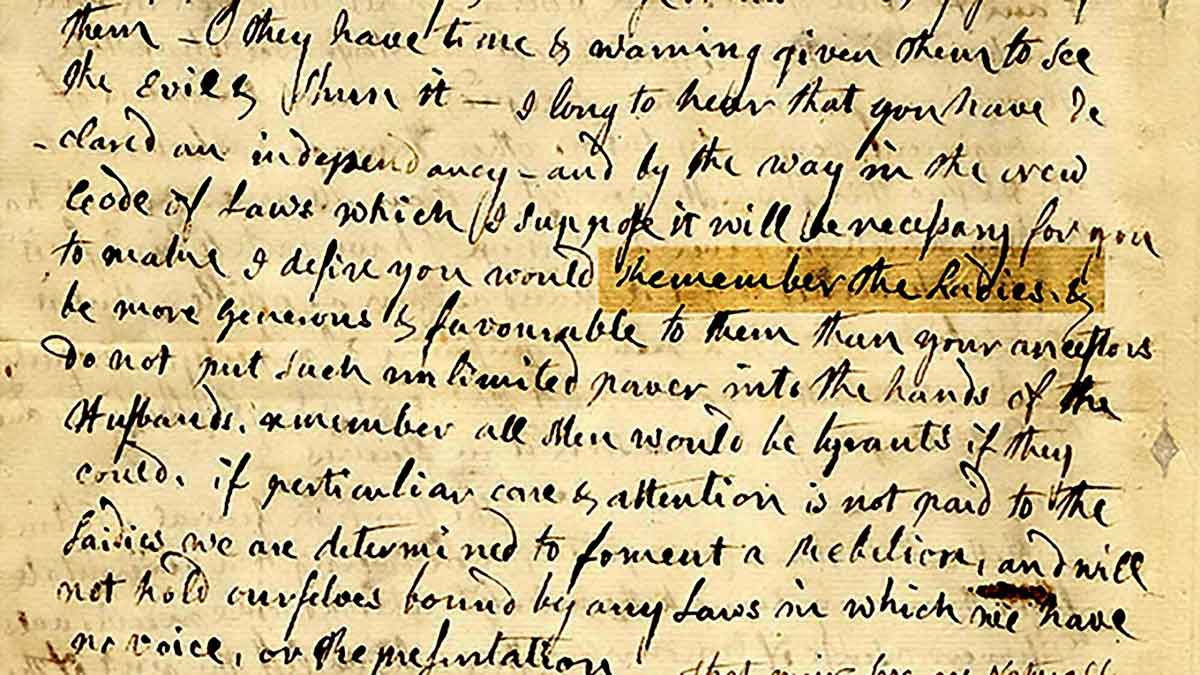 them - O they have time & warning given them to see
the Evil & shun it - I long to hear that you have de
-clared an independancy - and by the way in the new
Code of Laws which I suppose it will be necessary for you
to make I desire you would Remember the Ladies, &
be more generous & favourable to them than your ancestors
do not put such unlimited power into the hands of the
Husbands. remember all Men would be tyrants if they
could. if perticuliar care & attention is not paid to the
Laidies we are determined to foment a Rebelion, and will
not hold ourselves bound by any Laws in which we have
no voice, or Representation